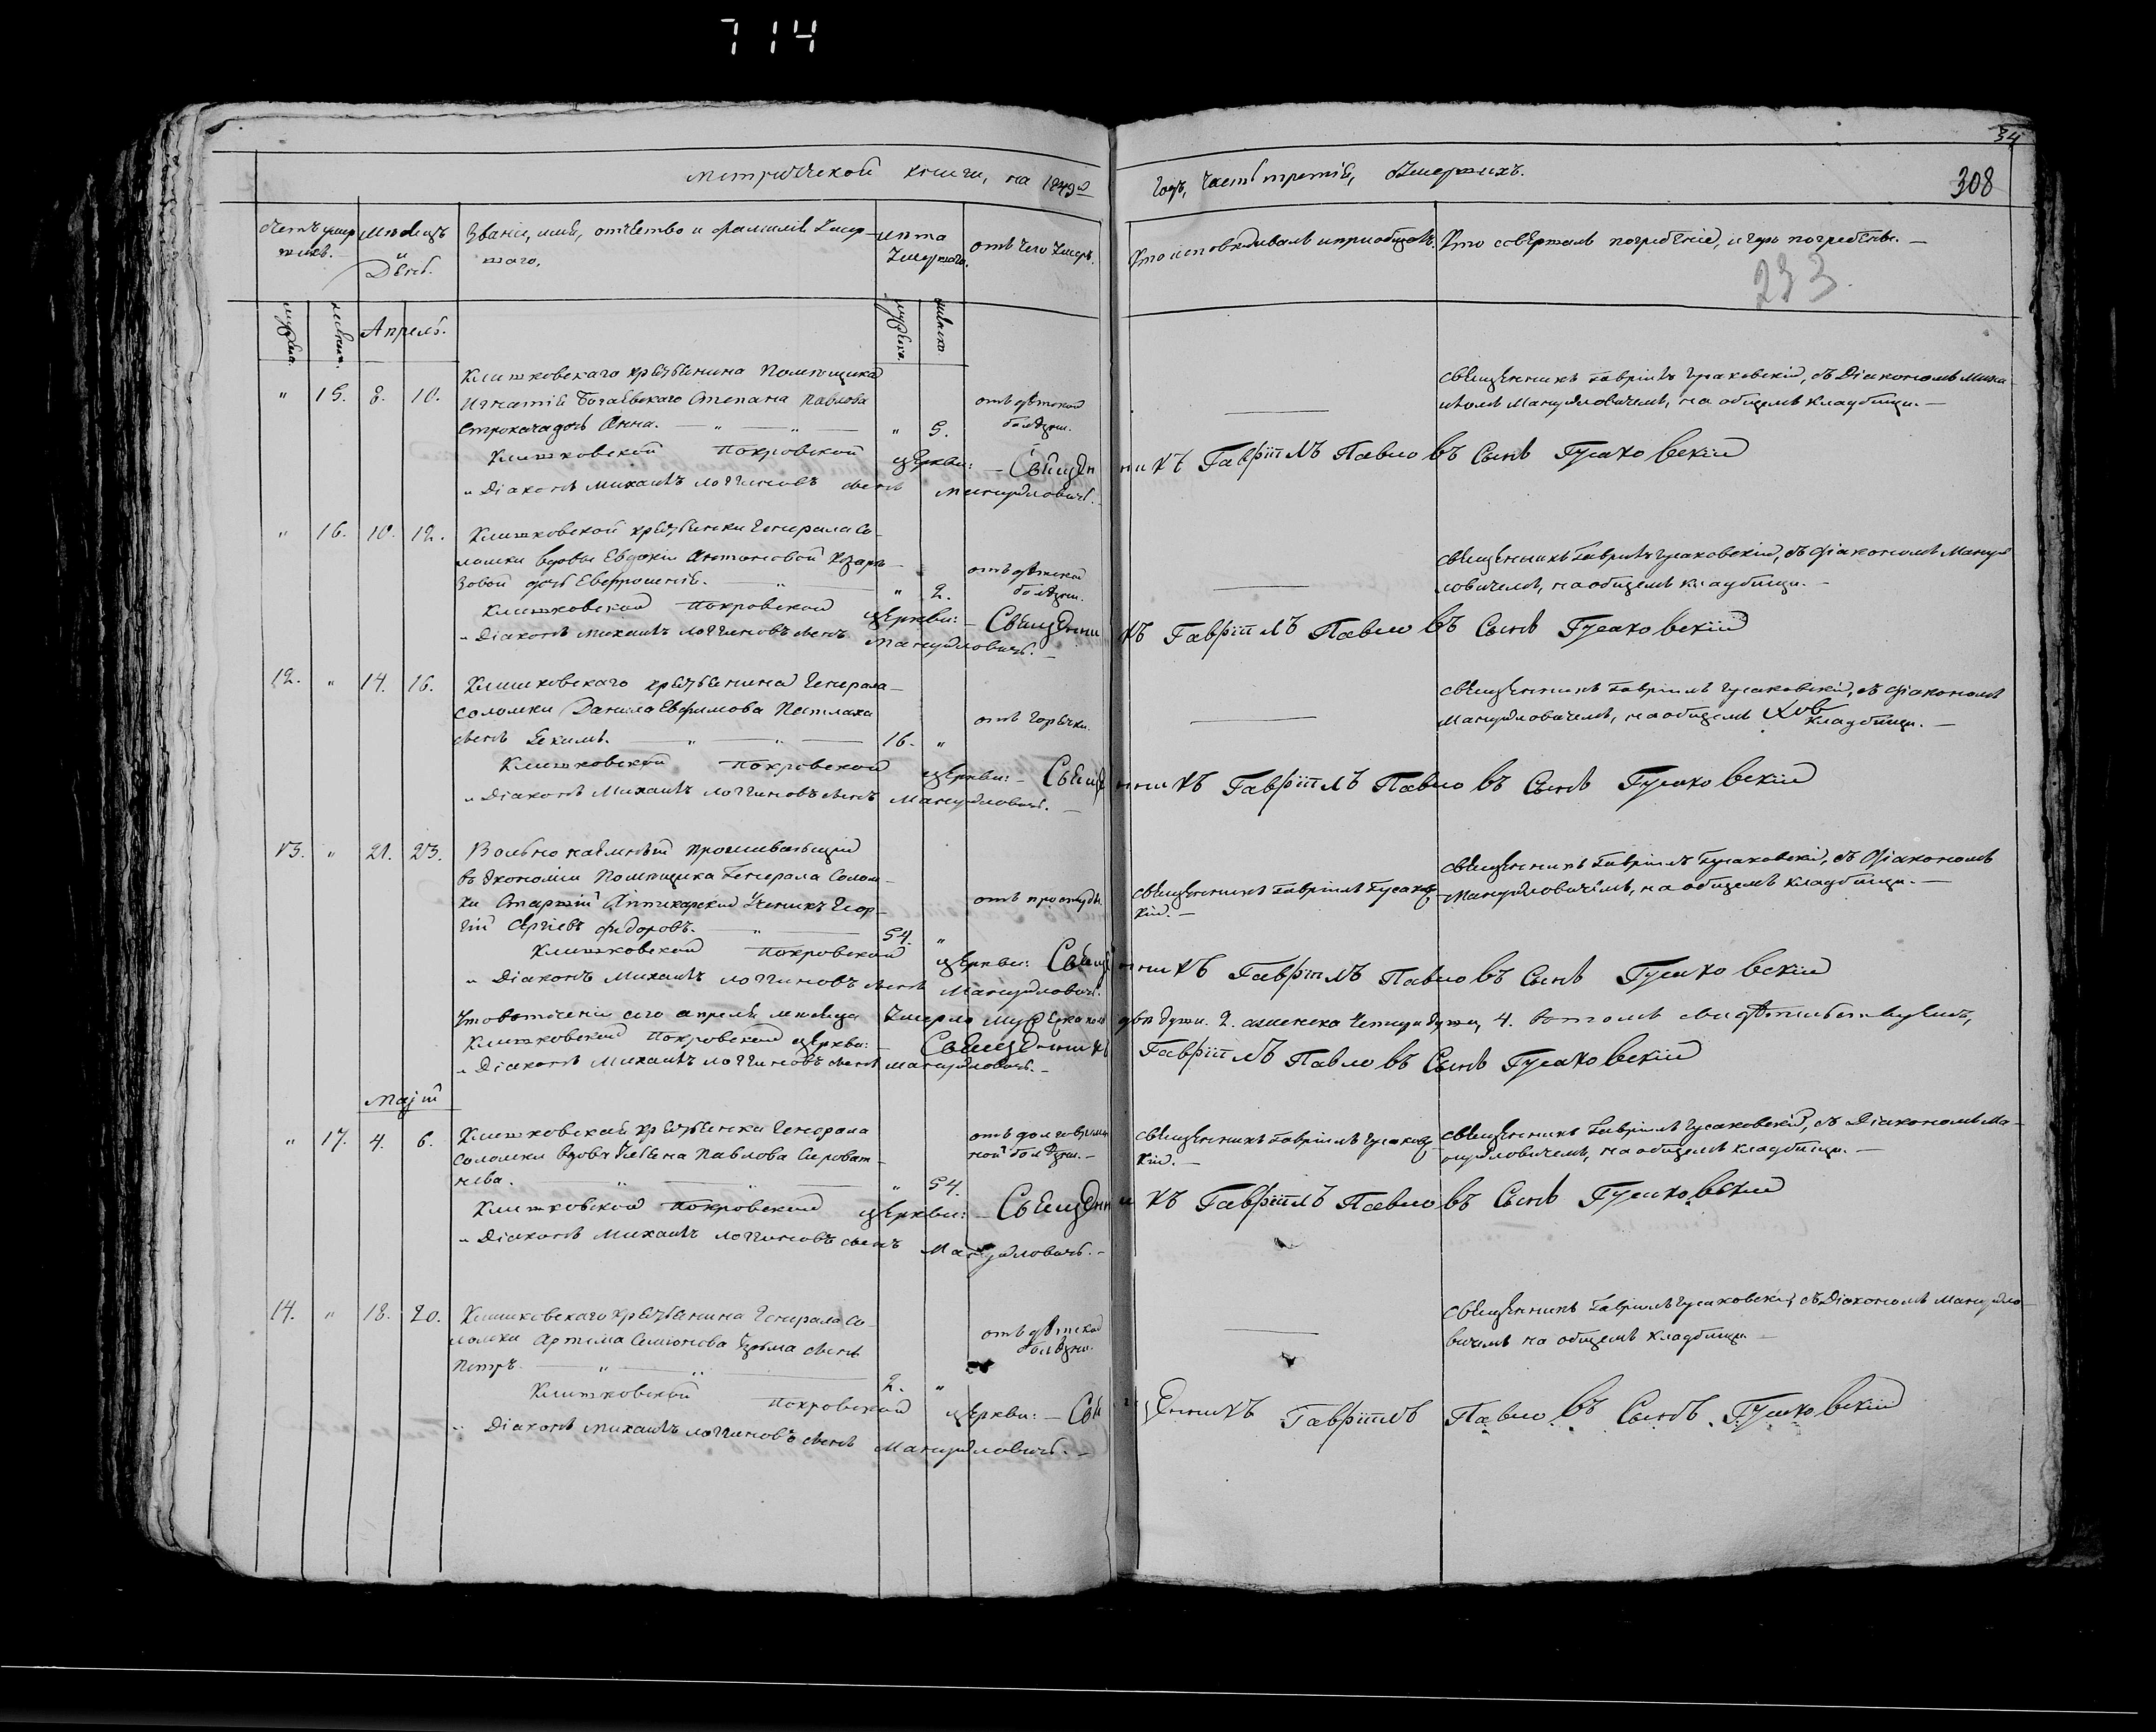 714
34
метрической книги, на 1849й
годъ, Часть третія, Умершихъ.
308
Счетъ умер
шихъ.
Мѣсяцъ
и
День.
Званіе, имя, отчество и фамилія Умер-
шаго.
лѣта
Умершаго.
отъ чего Умеръ.
Кто исповѣдывалъ и пріобщалъ.
Кто совершалъ погребеніе, и гдѣ погребены.
233.
мужеска.
женска.
Апрель.
мужеска.
женска.
Клишковскаго крестьянина Помещика
" 15. 8. 10. Игнатія Степана Павлова
дочь Анна. " 5.
отъ дѣтской
болѣзни.
Священникъ Гавріилъ Гусаковскій, съ Діакономъ Миха-
иломъ Мануйловичемъ, на общемъ кладбищи.
Клишковской Покровской церкви: Священникъ Гавріилъ Павловъ Сынъ Гусаковскій
" Діаконъ Михаилъ Логгиновъ сынъ Мануйловичъ.
" 16. 10. 12. Клишковской крестьянки Генерала Со-
ломки вдовы Евдокіи Антоновой
зовой дочь Евфросинія. " 2.
отъ дѣтской
болѣзни.
Священникъ Гавріилъ Гусаковскій, съ Діакономъ Мануй
ловичемъ, на общемъ кладбищи.
Клишковской Покровской церкви: Священникъ Гавріилъ Павловъ Сынъ Гусаковскій
" Діаконъ Михаилъ Логгиновъ сынъ Мануйловичъ.
12. " 14. 16. Клишковскаго крестьянина Генерала
Соломки Данила Евфимова
сынъ Екимъ. 16. "
отъ горячки.
Священникъ Гавріилъ Гусаковскій, съ Діакономъ
Мануйловичемъ, на общемъ кладбищи.
Клишковской Покровской церкви: Священникъ Гавріилъ Павловъ Сынъ Гусаковскій
" Діаконъ Михаилъ Логгиновъ сынъ Мануйловичъ.
13. " 21. 23. Вольно наемный проживающій
въ Экономіи Помещика Генерала Солом-
ки Старшій Аптекарскій Ученикъ Геор-
гій Сергіевъ Фидоровъ. 54. "
отъ простуды
Священникъ Гавріилъ Гусаковс
кій.
Священникъ Гавріилъ Гусаковскій, съ Діакономъ
Мануйловичемъ, на общемъ кладбищи.
Клишковской Покровской церкви: Священникъ Гавріилъ Павловъ Сынъ Гусаковскій
" Діаконъ Михаилъ Логгиновъ сынъ Мануйловичъ.
Что въ теченіи сего апреля месяца Умерло мужеска пола двѣ души. 2. а женска четыри души, 4. в томъ свидѣтельствуемъ,
Клишковской Покровской церкви: Священникъ Гавріилъ Павловъ Сынъ Гусаковскій
" Діаконъ Михаилъ Логгиновъ сынъ Мануйловичъ.
Маій
" 17. 4. 6. Клишковская крестьянка Генерала
Соломки вдова Павлова
нева. " 54.
отъ долговремен
ной болѣзни.
Священникъ Гавріилъ Гусаковс
кій.
Священникъ Гавріилъ Гусаковскій, съ Діакономъ Ма-
нуйловичемъ, на общемъ кладбищи.
Клишковской Покровской церкви: Священникъ Гавріилъ Павловъ Сынъ Гусаковскій
" Діаконъ Михаилъ Логгиновъ сынъ Мануйловичъ.
14. " 18. 20. Клишковскаго крестьянина Генерала Со-
ломки Артема Семіонова сынъ
Петръ. 2. "
отъ дѣтской
болѣзни.
Священникъ Гавріилъ Гусаковскій, съ Діакономъ Мануйло-
вичемъ на общемъ кладбищи
Клишковской Покровской церкви: Священникъ Гавріилъ Павловъ Сынъ Гусаковскій
" Діаконъ Михаилъ Логгиновъ сынъ Мануйловичъ.